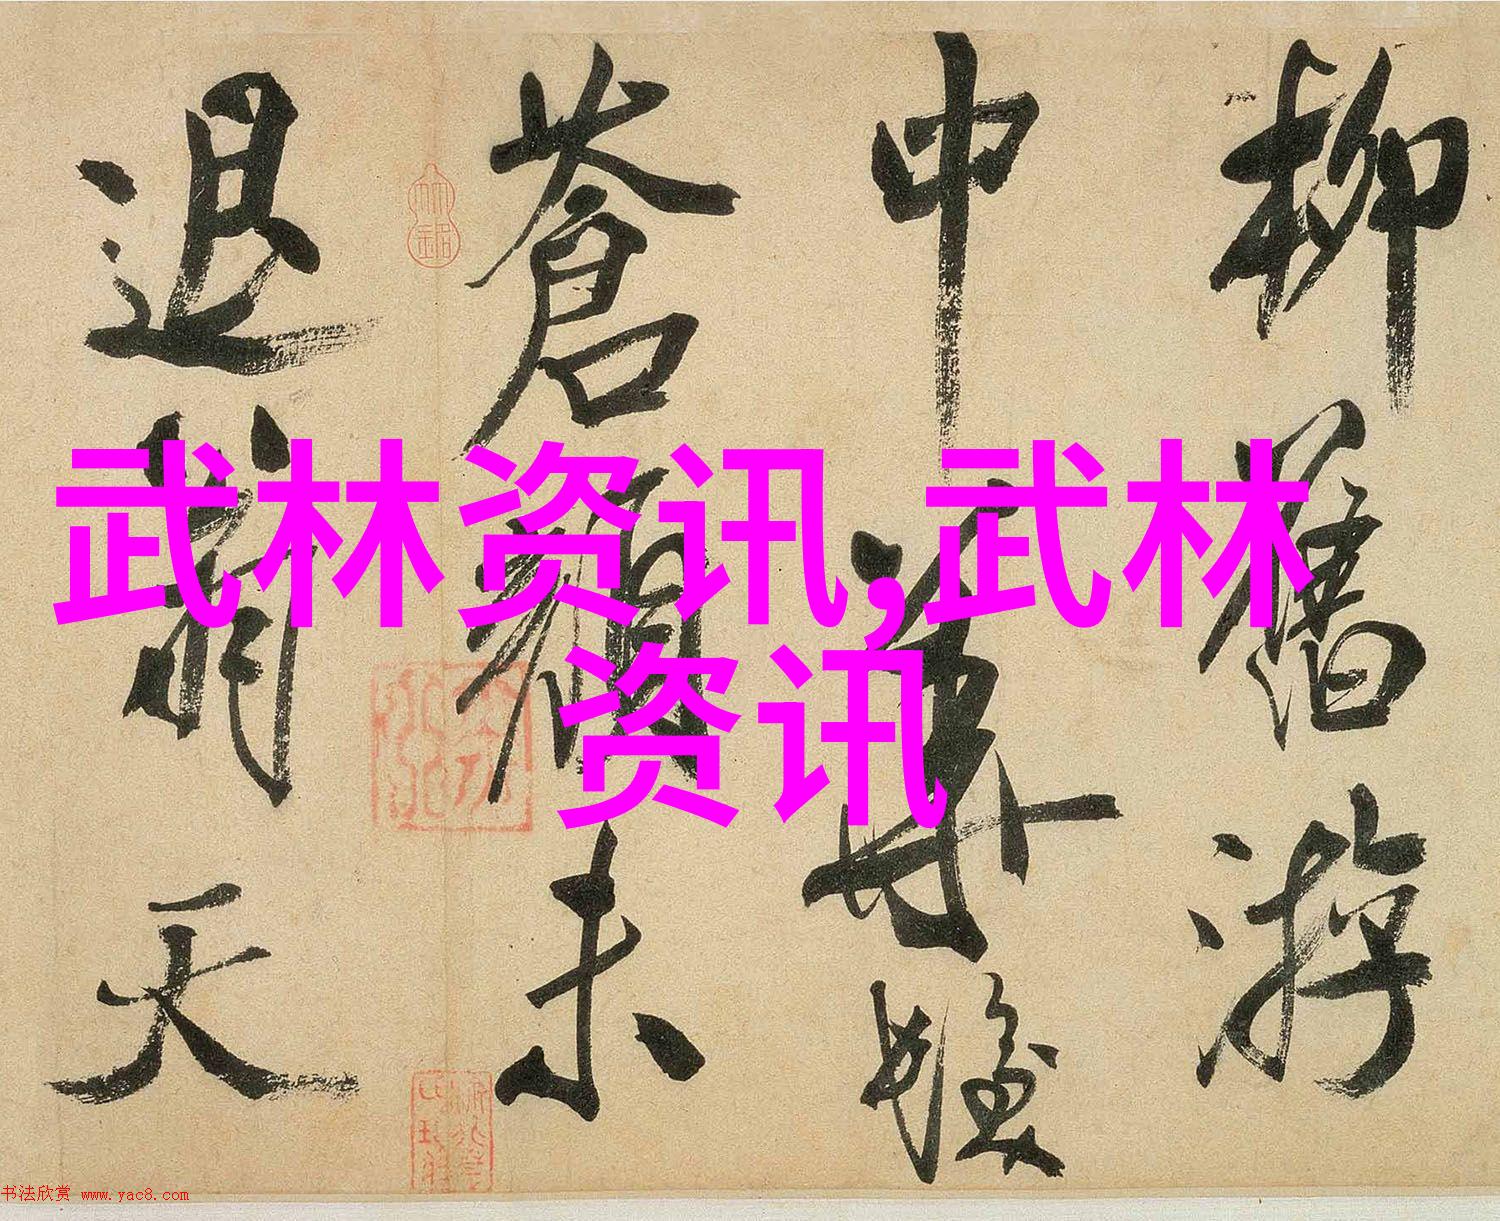 柳舊游
中華
蒼顏未
退天
武林资讯,武林
资讯
书法欣赏 www.yac8.com